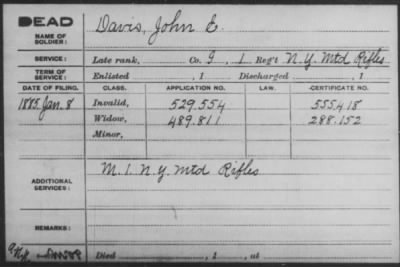 DEAD
NAME OF SOLDIER: Davis, John E.
SERVICE: Late rank, Co. G, 1 Reg't N.Y. Mtd Rifles
TERM OF SERVICE: Enlisted , 1 Discharged , 1
DATE OF FILING. CLASS. APPLICATION NO. LAW. CERTIFICATE NO.
1885, Jan. 8 Invalid, 529.554 555418
Widow, 489.811 288.152
Minor,
ADDITIONAL SERVICES: M. 1. N.Y. Mtd Rifles
REMARKS:
Died , 1 , at